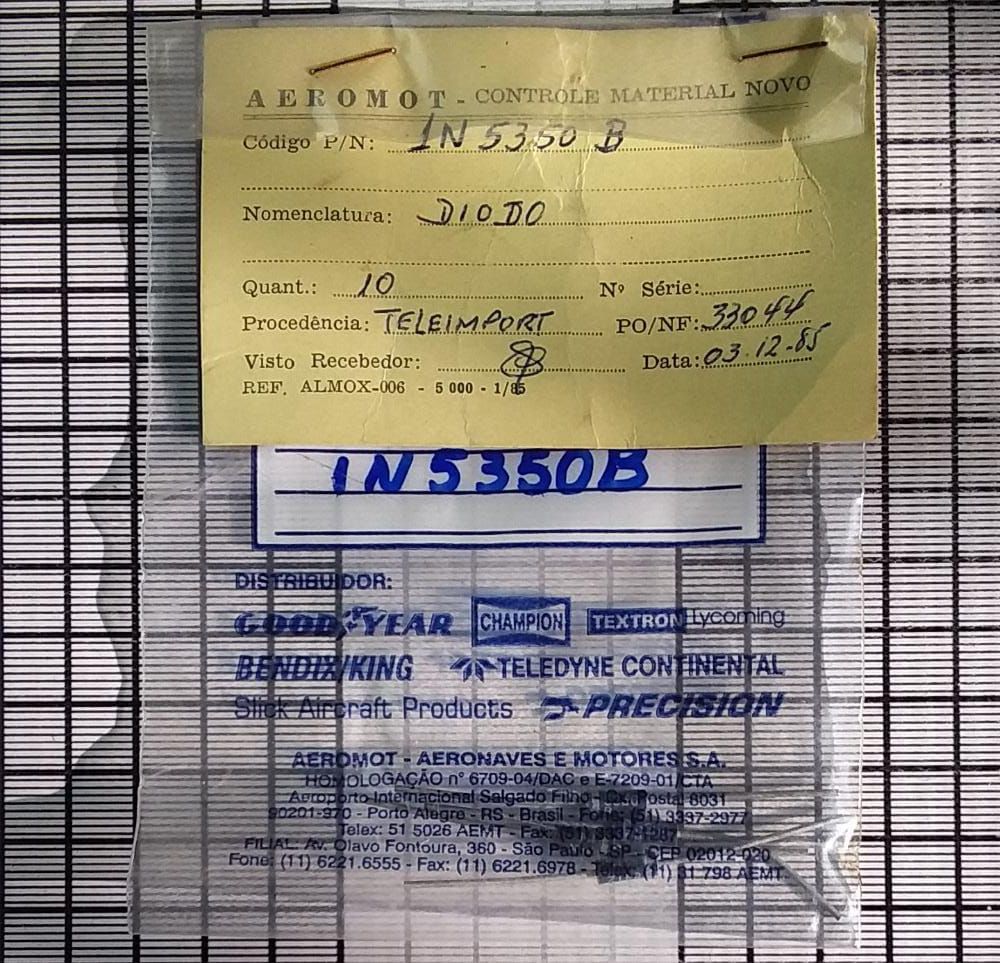 AEROMOT - CONTROLE MATERIAL NOVO
Código P/N: 1N 5350 B
Nomenclatura: DIODO
Quant.: 10 Nº Série:
Procedência: TELEIMPORT PO/NF: 33044
Visto Recebedor: Data: 03.12-85
REF. ALMOX-006 - 5 000 - 1/85
1N5350B
DISTRIBUIDOR:
GOODYEAR CHAMPION TEXTRON Lycoming
BENDIX/KING TELEDYNE CONTINENTAL
Slick Aircraft Products PRECISION
AEROMOT - AERONAVES E MOTORES S.A.
HOMOLOGAÇÃO nº 6709-04/DAC e E-7209-01/CTA
Aeroporto Internacional Salgado Filho - Cx. Postal 8031
90201-970 - Porto Alegre - RS - Brasil - Fone: (51) 3337-2977
Telex: 51 5026 AEMT - Fax: (51) 3337-1287
FILIAL: Av. Olavo Fontoura, 360 - São Paulo - SP - CEP 02012-020
Fone: (11) 6221.6555 - Fax: (11) 6221.6978 - Telex: (11) 31 798 AEMT